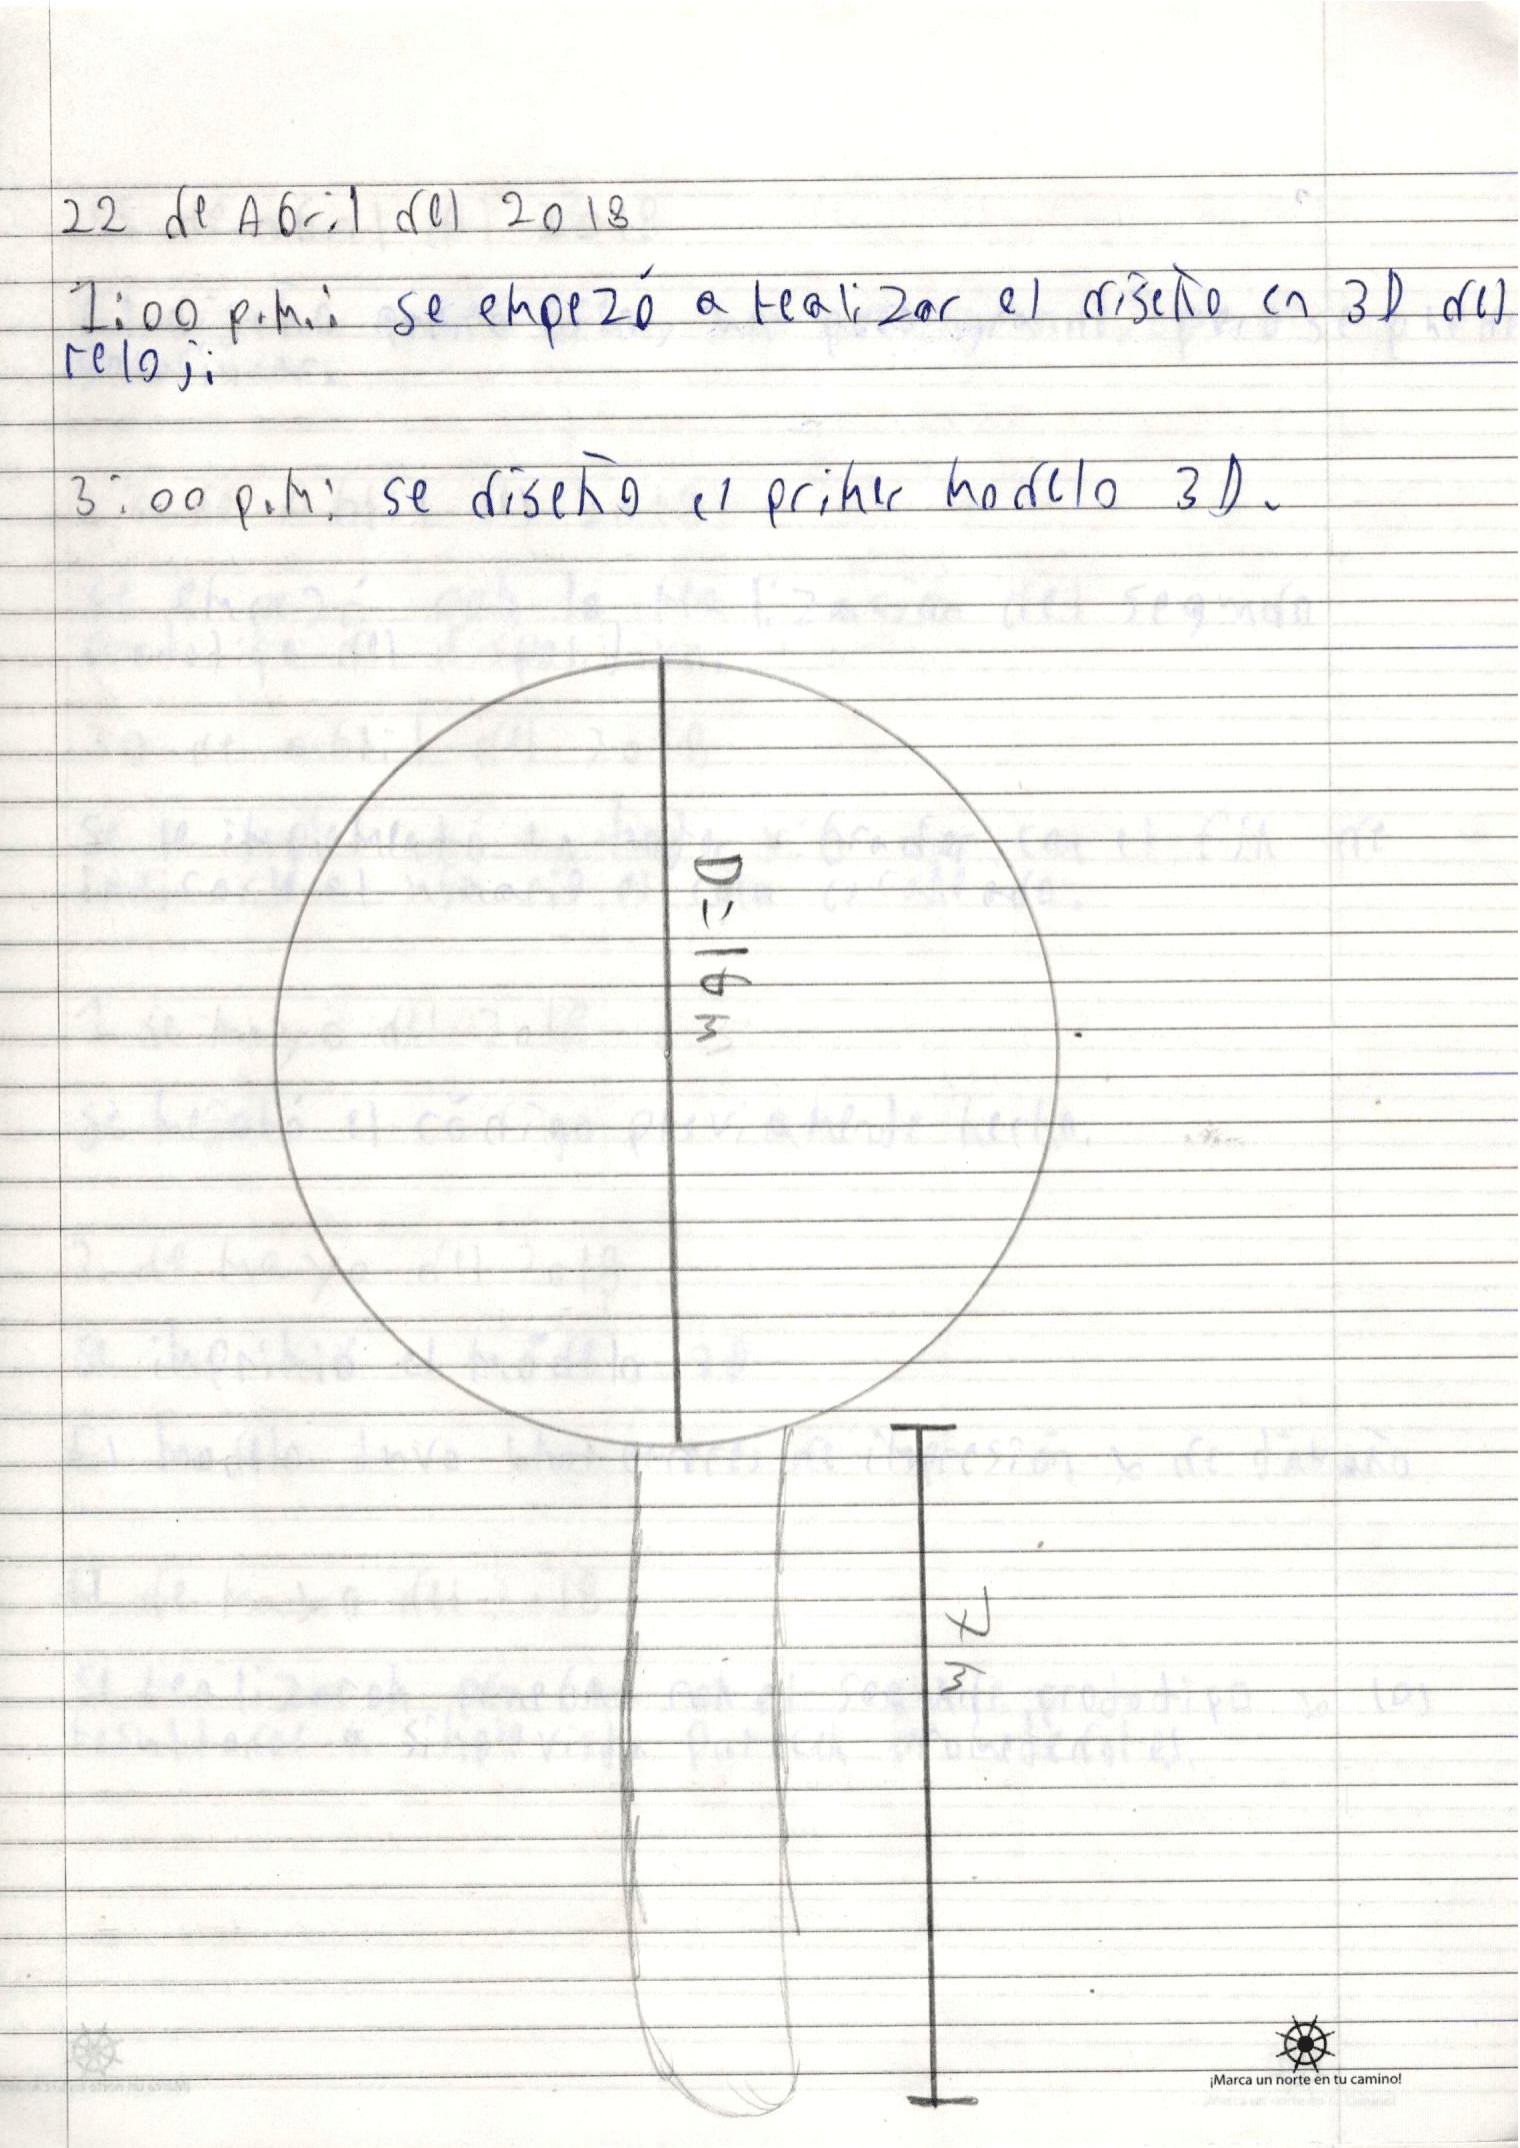 22 de Abril del 2018
1:00 p.m.: se empezó a realizar el diseño en 3D del
reloj:
3:00 p.m: se diseño el primer modelo 3D.
D=16 m
7 m
¡Marca un norte en tu camino!